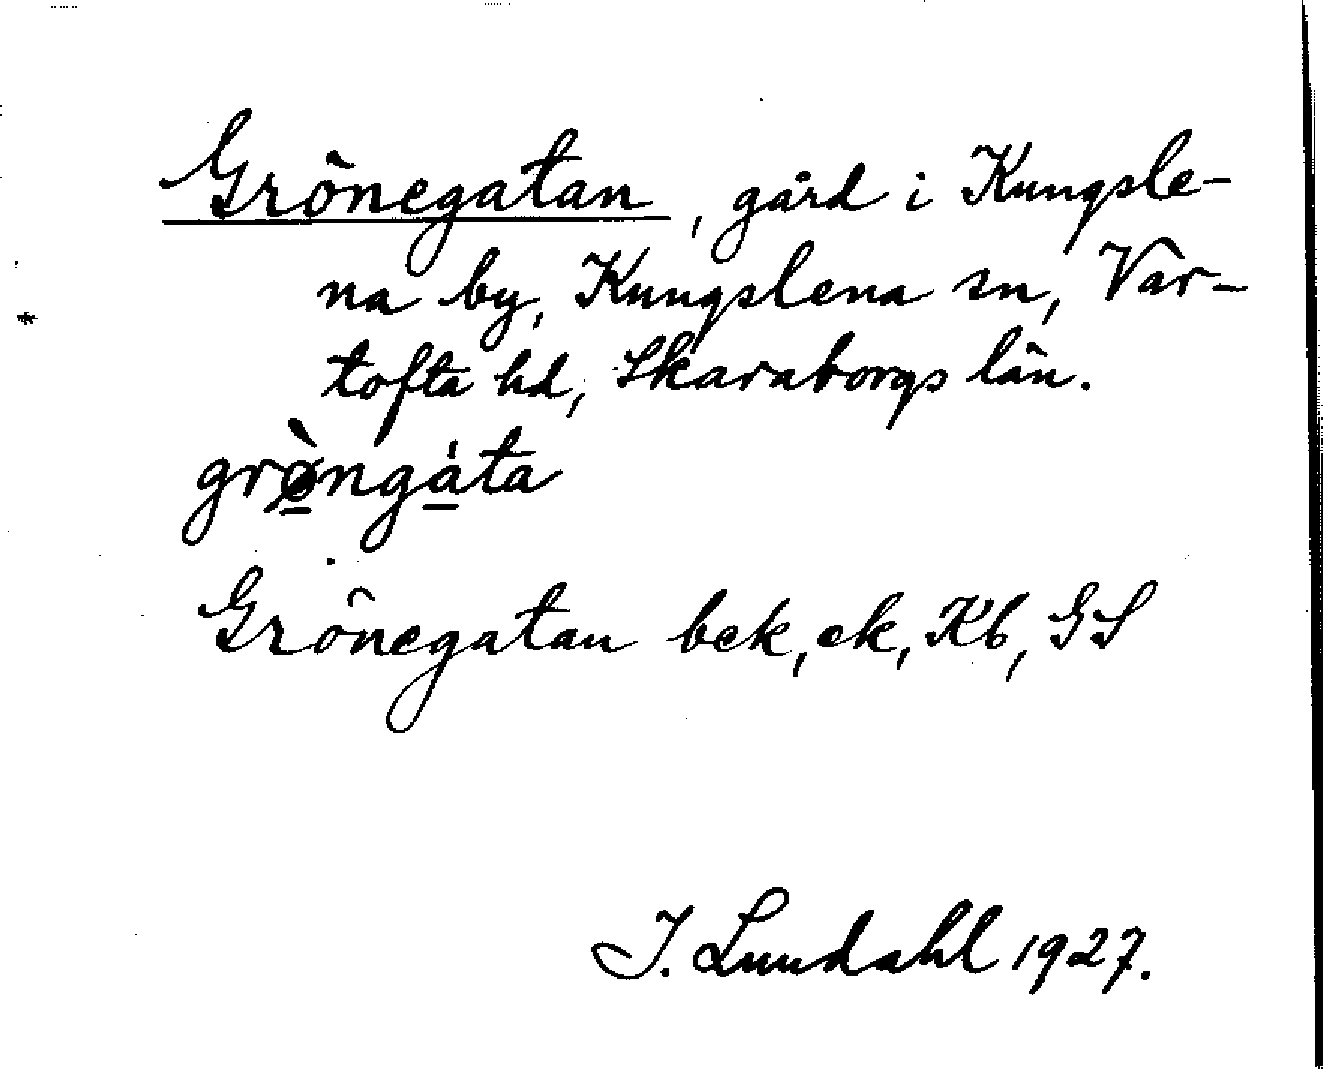 Grönegatan, gård i Kungsle-
na by, Kungslena sn, Var-
tofta hd, Skaraborgs län.
grø̀ngáta
Grönegatan bek, ek, Kb, GS
I. Lundahl 1927.